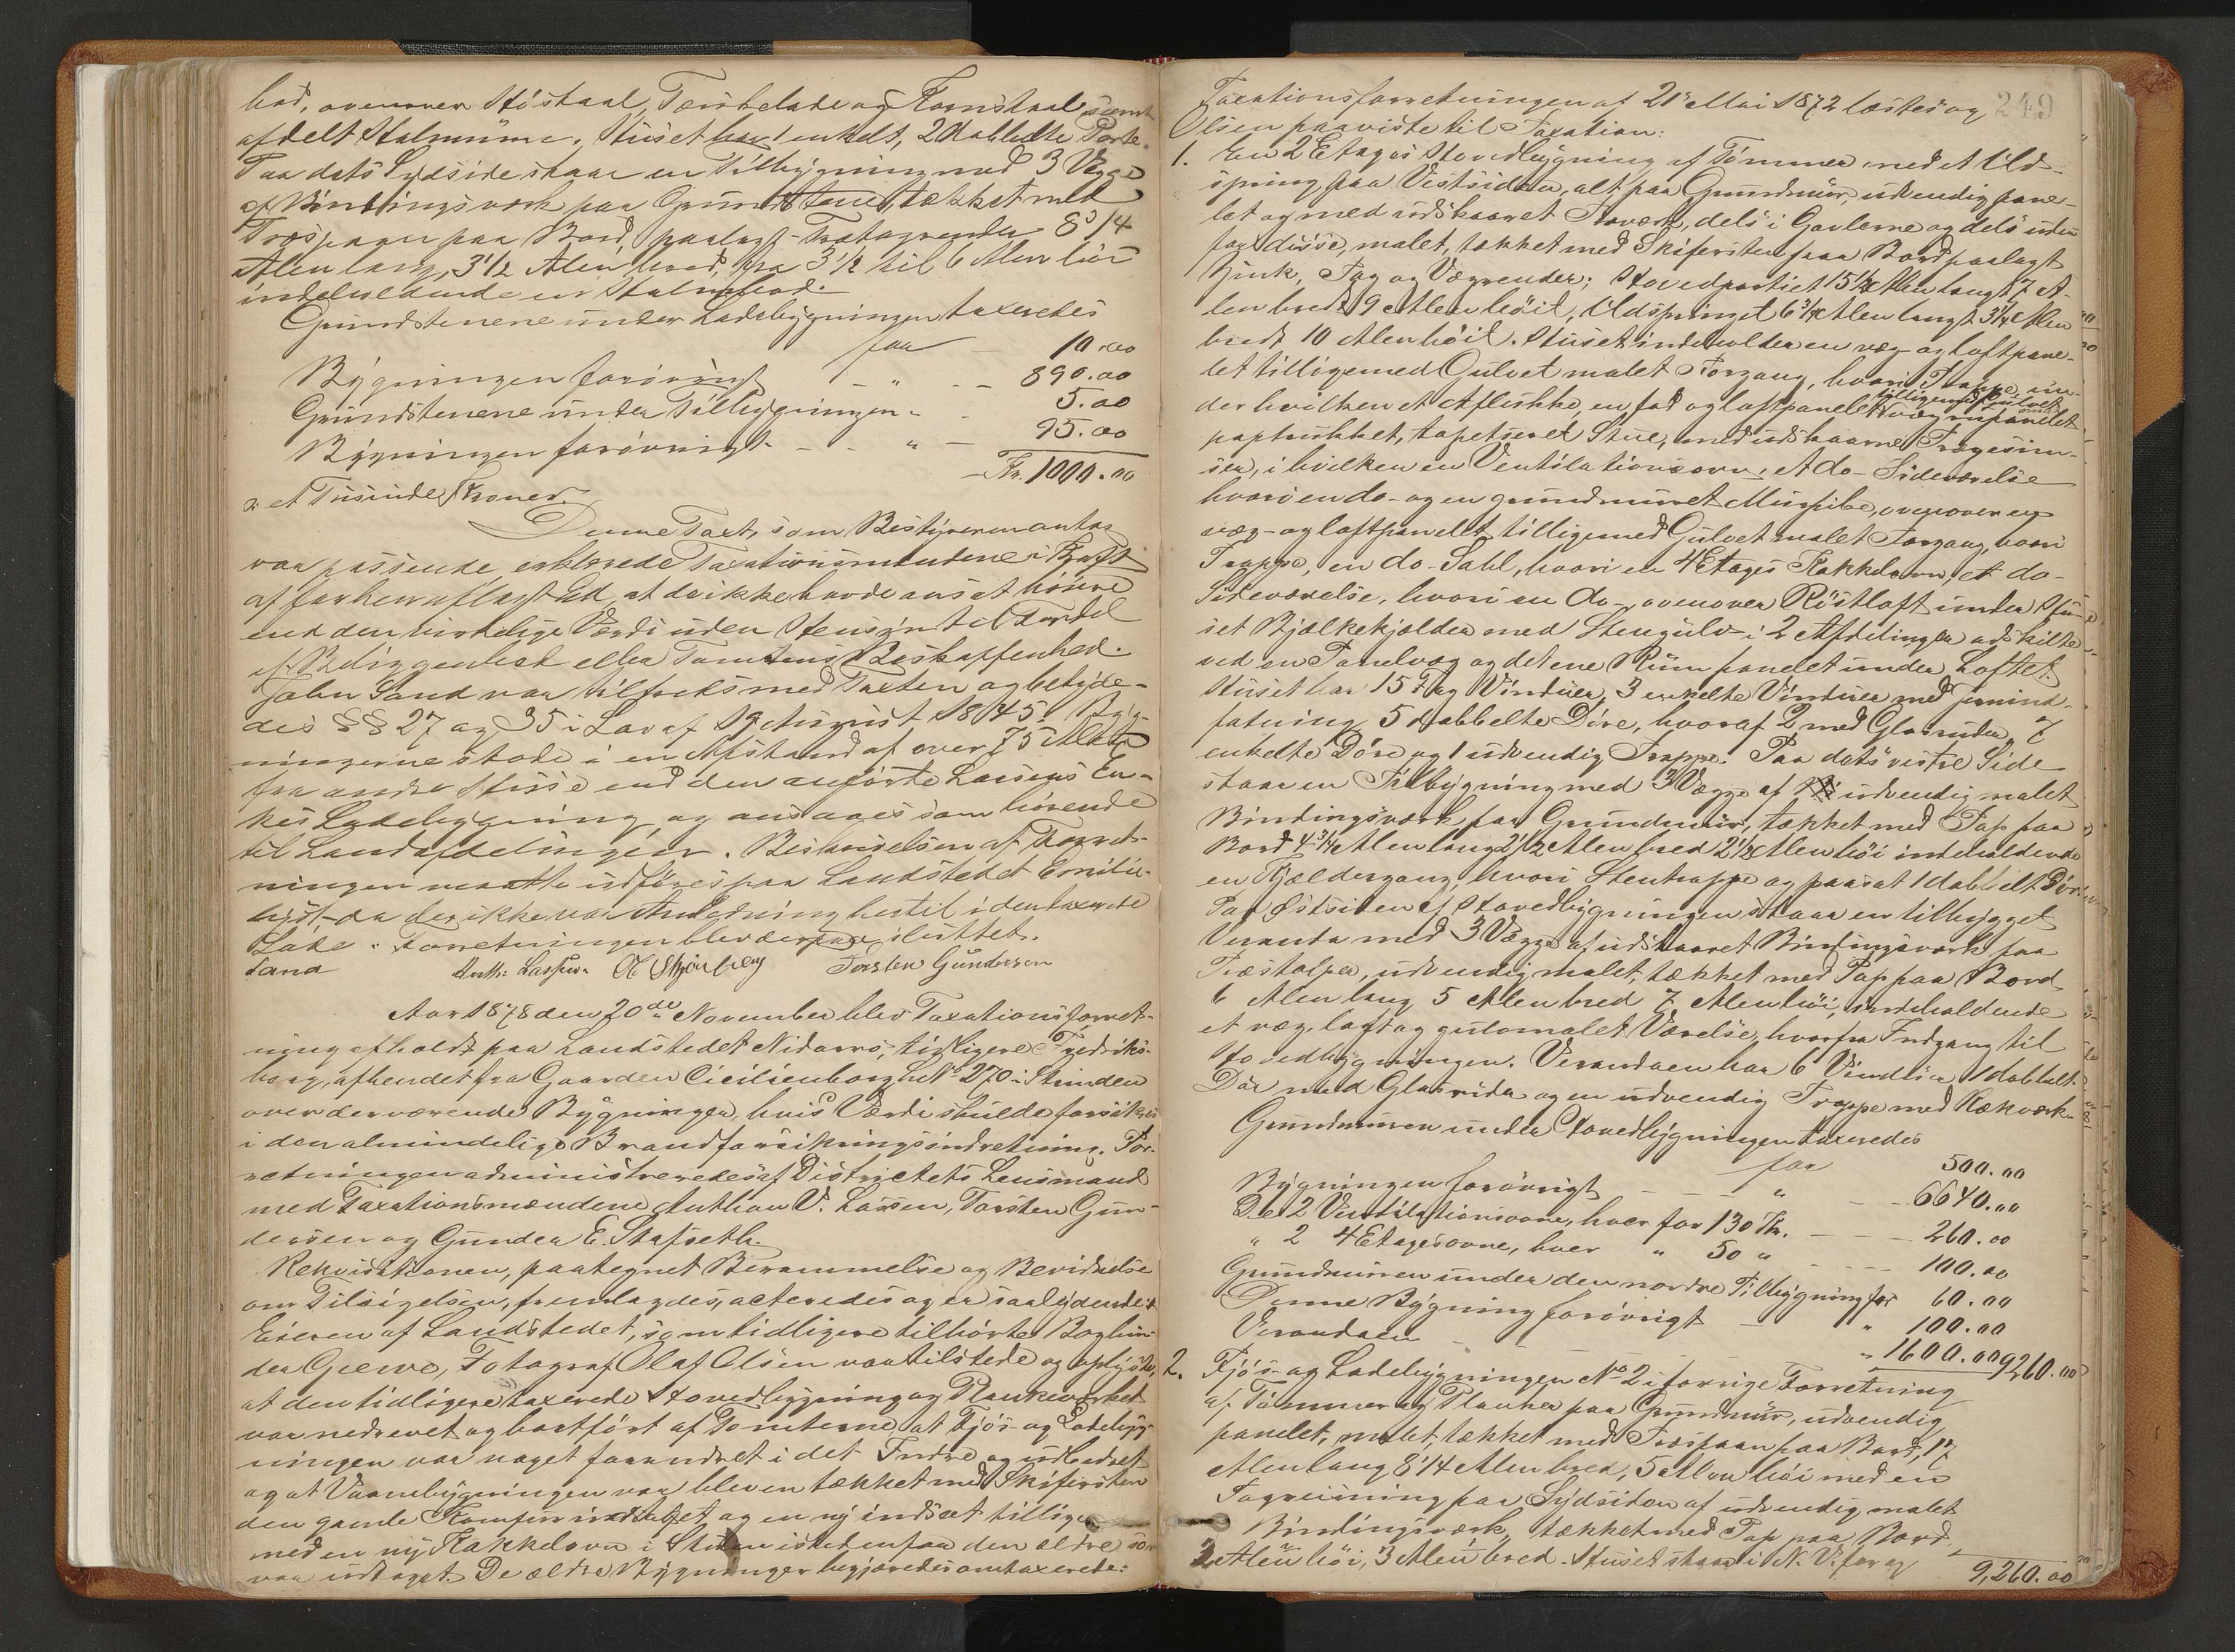 bod, ovenover Höstaal, Tærskelade og Kornstaal samt
afdelt Halmrum. Huset har 1 enkelt, 2 dobbelte Porte.
Paa dets Sydside staar en Tilbygning med 3 Vægge
af Bindingsværk paa Grundstene, tækket med
Træspaan paa Bord, paalagt Trætagrender 8 3/4
Alen lang, 3 1/2 Alen bred, fra 3 1/2 til 6 Alen höi
indeholdende en Halmbod.
Grundstenene under Ladebygningen taxeredes
for 10.00
Bygningen forövrigt - " - - 890.00
Grundstenene under Tilbygningen - 5.00
Bygningen forövrigt - - " - 95.00
- Kr. 1000.00
er et Tusinde Kroner.
Denne Taxt, som Bestyreren antog
var passende, erklærede Taxationsmændene i Kraft
af forhen aflagt Ed, at de ikke havde ansat höiere
end den virkelige Værdi uden Hensyn til Fordel
af Beliggenhed eller Tomtens Beskaffenhed.
John Sand var tilfreds med Taxten og betyde-
des §§ 27 og 35 i Lov af 19 August 1845. Byg-
ningerne stode i en Afstand af over 75 Alen
fra andre Huse end den anförte Larsens En-
kes Ladebygning og ansaaes som hörende
til Landafdelingen. Beskrivelsen af Forret-
ningen maatte udföres paa Landstedet Emilie-
lyst, da der ikke var Anledning hertil i den taxerede
Lade. Forretningen blev derpaa sluttet.
Sand Anth: Lassen. Torsten Gundersen
Aar 1878 den 20de November blev Taxationsforret-
ning afholdt paa Landstedet Nidarö, tidligere Fredriks-
borg, afhendet fra Gaarden Cicilienborg LNo 270 i Strinden
over derværende Bygninger, hvis Værdi skulde forsikres
i den almindelige Brandforsikringsindretning. For-
retningen administreredes af Districtets Lensmand
med Taxationsmændene Anthon V. Lassen, Torsten Gun-
dersen og Gunder E. Stafseth.
Rekvisitionen, paategnet Berammelse og Bevidnelse
om Tilsigelsen, fremlagdes, acteredes og er saalydende:
Eieren af Landstedet, som tidligere tilhörte Bogbin-
der Greeve, Fotograf Olaf Olsen var tilstede og oplyste,
at den tidligere taxerede Hovedbygning og Plankeværket
var nedrevet og bortfört af Tomterne, at Fjös- og Ladebyg-
ningen var noget forandret i det Indre og udbedret
og at Vaanebygningen var bleven tækket med Skifersten
den gamle Komfur udtaget og en ny indsat tillige
med en ny Kakkelovn i Stuen istedenfor den ældre som
var udtaget. De ældre Bygninger begjæredes omtaxerede:
249
Taxationsforretningen af 21 Mai 1872 læstes og
Olsen paaviste til Taxation:
1. En 2 Etages Hovedbygning af Tömmer med et Ud-
spring paa Vestsiden, alt paa Grundmur, udvendig pane-
let og med udskaaret Træværk, dels i Gavlerne og dels uden
for disse, malet, tækket med Skifersten paa Bord paalagt
Zink, Tag og Vægrender; Hovedpartiet 15 1/4 Alen langt 7 A-
len bredt 9 Alen höit, Udspringet 6 3/4 Alen langt 3 1/4 Alen
bredt 10 Alen höit. Huset indeholder en væg- og loftpane-
let tilligemed Gulvet malet Forgang, hvori Trappe un-
der hvilken et Aflukke, en fod og loftpanelet tilligemed Gulvet
paptrukket, tapetseret Stue, med udskaarne Trægesim-
ser, i hvilken en Ventilationsovn, et do- Sideværelse
hvori en do- og en grundmuret Murpibe, ovenover en
væg- og loftpanelet tilligemed Gulvet malet Forgang, hvori
Trappe, en do- Sal, hvori en 4 Etages Kakkelovn, et do-
Sideværelse, hvori en do-, ovenover Röstloft, under Hu-
set Bjælkekjælder med Stengulv i 2 Afdelinger adskilte
ved en Panelvæg og det ene Rum panelet under Loftet.
Huset har 15 Fag Vinduer, 3 enkelte Vinduer med Jernind-
fatning, 5 dobbelte Döre, hvoraf 2 med Glasruder, 7
enkelte Döre og 1 udvendig Trappe. Paa dets vestre Side
staar en Tilbygning med 3 Vægge af udvendig malet
Bindingsværk paa Grundmur, tækket med Pap paa
Bord 4 3/4 Alen lang 2 1/2 Alen bred 2 1/2 Alen höi indeholdende
en Kjældergang, hvori Stentrappe og paasat 1 dobbelt Dör.
Paa Östsiden af Hovedbygningen staar en tilbygget
Veranda med 3 Vægge af udskaaret Bindingsværk paa
Træstolper, udvendig malet, tækket med Pap paa Bord
6 Alen lang 5 Alen bred 7 Alen höi, indeholdende
et væg, loft og gulvmalet Værelse, hvorfra Indgang til
Hovedbygningen. Verandaen har 6 Vinduer 1 dobbelt
Dör med Glasruder og en udvendig Trappe med Rækværk.
Grundmuren under Hovedbygningen taxeredes
for 500.00
Bygningen forövrigt - - - " - - 6640.00
De 2 Ventilationsovne, hver for 130 Kr. - - - 260.00
" 2 4 Etagesovne, hver " 50 " - - - - 100.00
Grundmuren under den nordre Tilbygning for 60.00
Denne Bygning forövrigt - " 100.00
Verandaen - - - - " 1600.00 9260.00
2. Fjös- og Ladebygningen No 2 i forrige Forretning
af Tömmer og Planker paa Grundmur, udvendig
panelet, malet, tækket med Træspaan paa Bord, 17
Alen lang 8 1/4 Alen bred, 5 Alen höi med en
Tagreisning paa Sydsiden af udvendig malet
Bindingsværk, tækket med Pap paa Bord
2 Alen höi, 3 Alen bred. Huset staar i N. V. for og
9,260.00